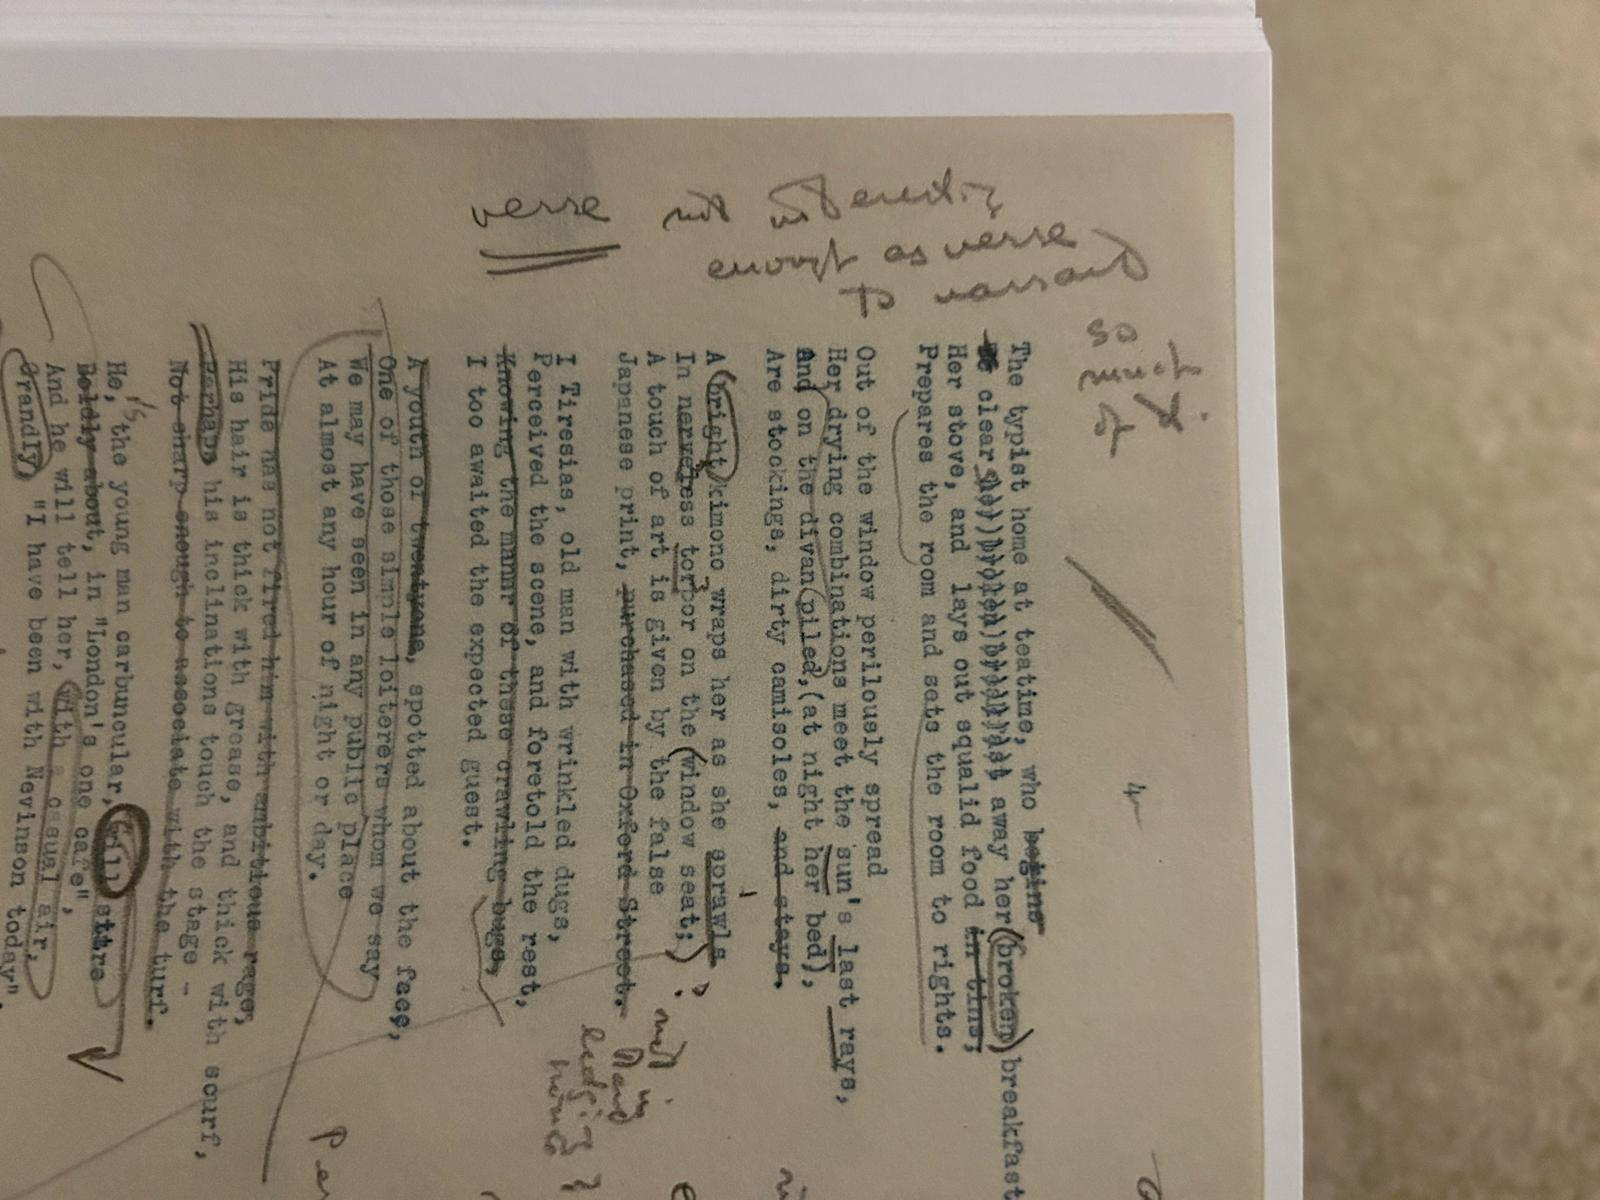 verse not interesting
enough as verse
to warrant
so
much
of
it
4
The typist home at teatime, who begins
To clear away her (broken) breakfast
Her stove, and lays out squalid food in tins,
Prepares the room and sets the room to rights.
Out of the window perilously spread
Her drying combinations meet the sun's last rays,
And on the divan piled, (at night her bed),
Are stockings, dirty camisoles, and stays.
A bright kimono wraps her as she sprawls
In nerveless torpor on the window seat;
A touch of art is given by the false
Japanese print, purchased in Oxford Street.
I Tiresias, old man with wrinkled dugs,
Perceived the scene, and foretold the rest,
Knowing the mannr of these crawling bugs,
I too awaited the expected guest.
A youth of twentyone, spotted about the face,
One of those simple loiterers whom we say
We may have seen in any public place
At almost any hour of night or day.
Pride has not fired him with ambitious rage,
His hair is thick with grease, and thick with scurf,
Perhaps his inclinations touch the stage -
Not sharp enough to associate with the turf.
He, the young man carbuncular, will stare
Boldly about, in "London's one cafe",
And he will tell her, with a casual air,
Grandly, "I have been with Nevinson today".